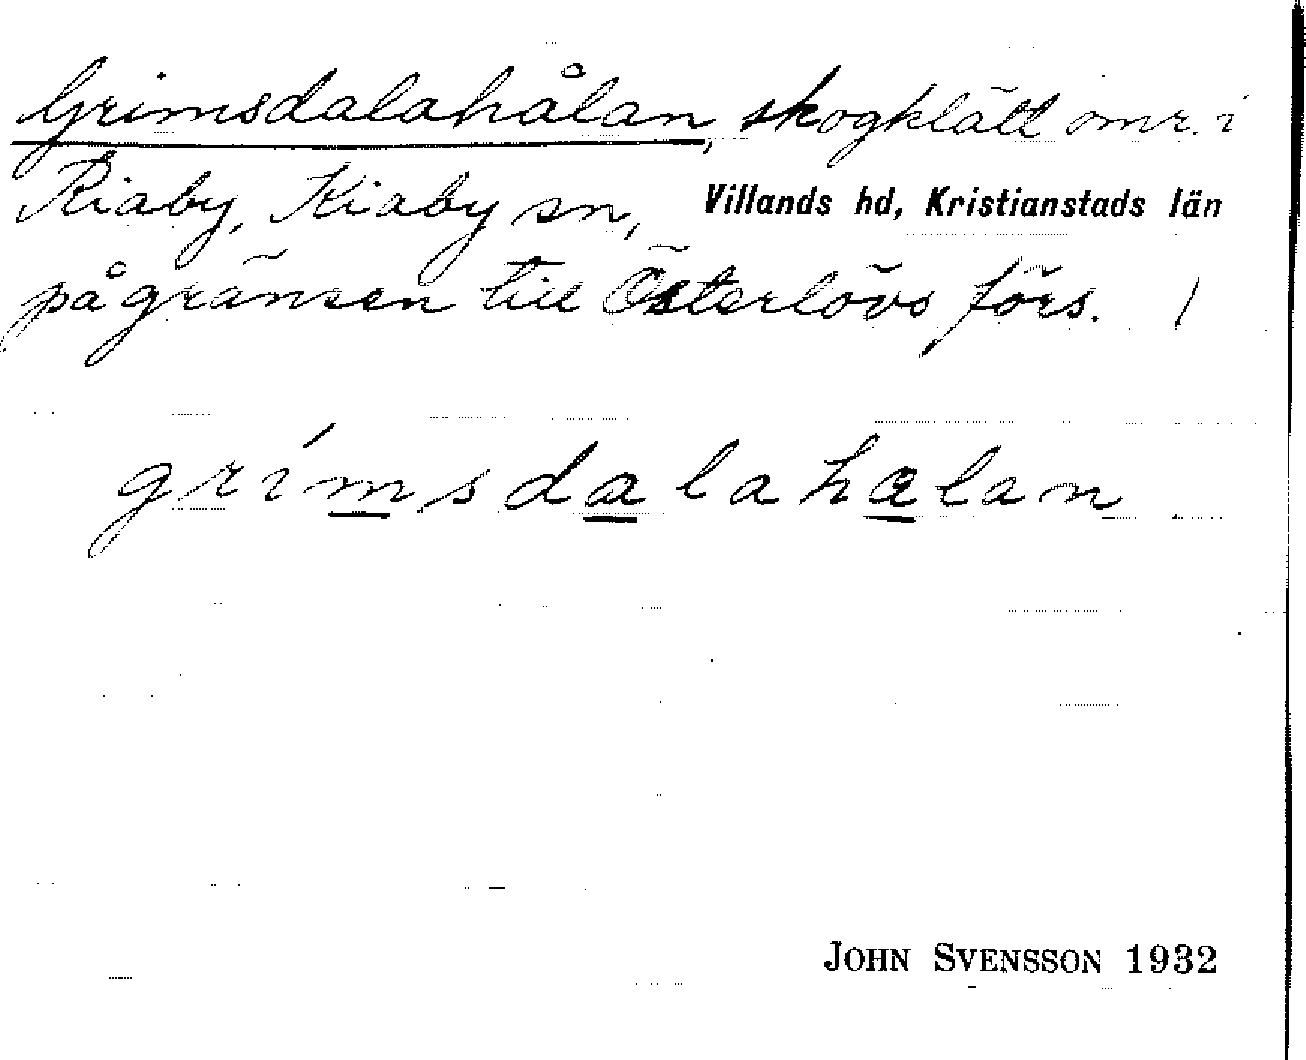 Grimsdalahålan, skogklätt omr. i
Riaby, Kiaby sn, Villands hd, Kristianstads län
på gränsen till Österlövs förs. /
grímsdalahalan
JOHN SVENSSON 1932